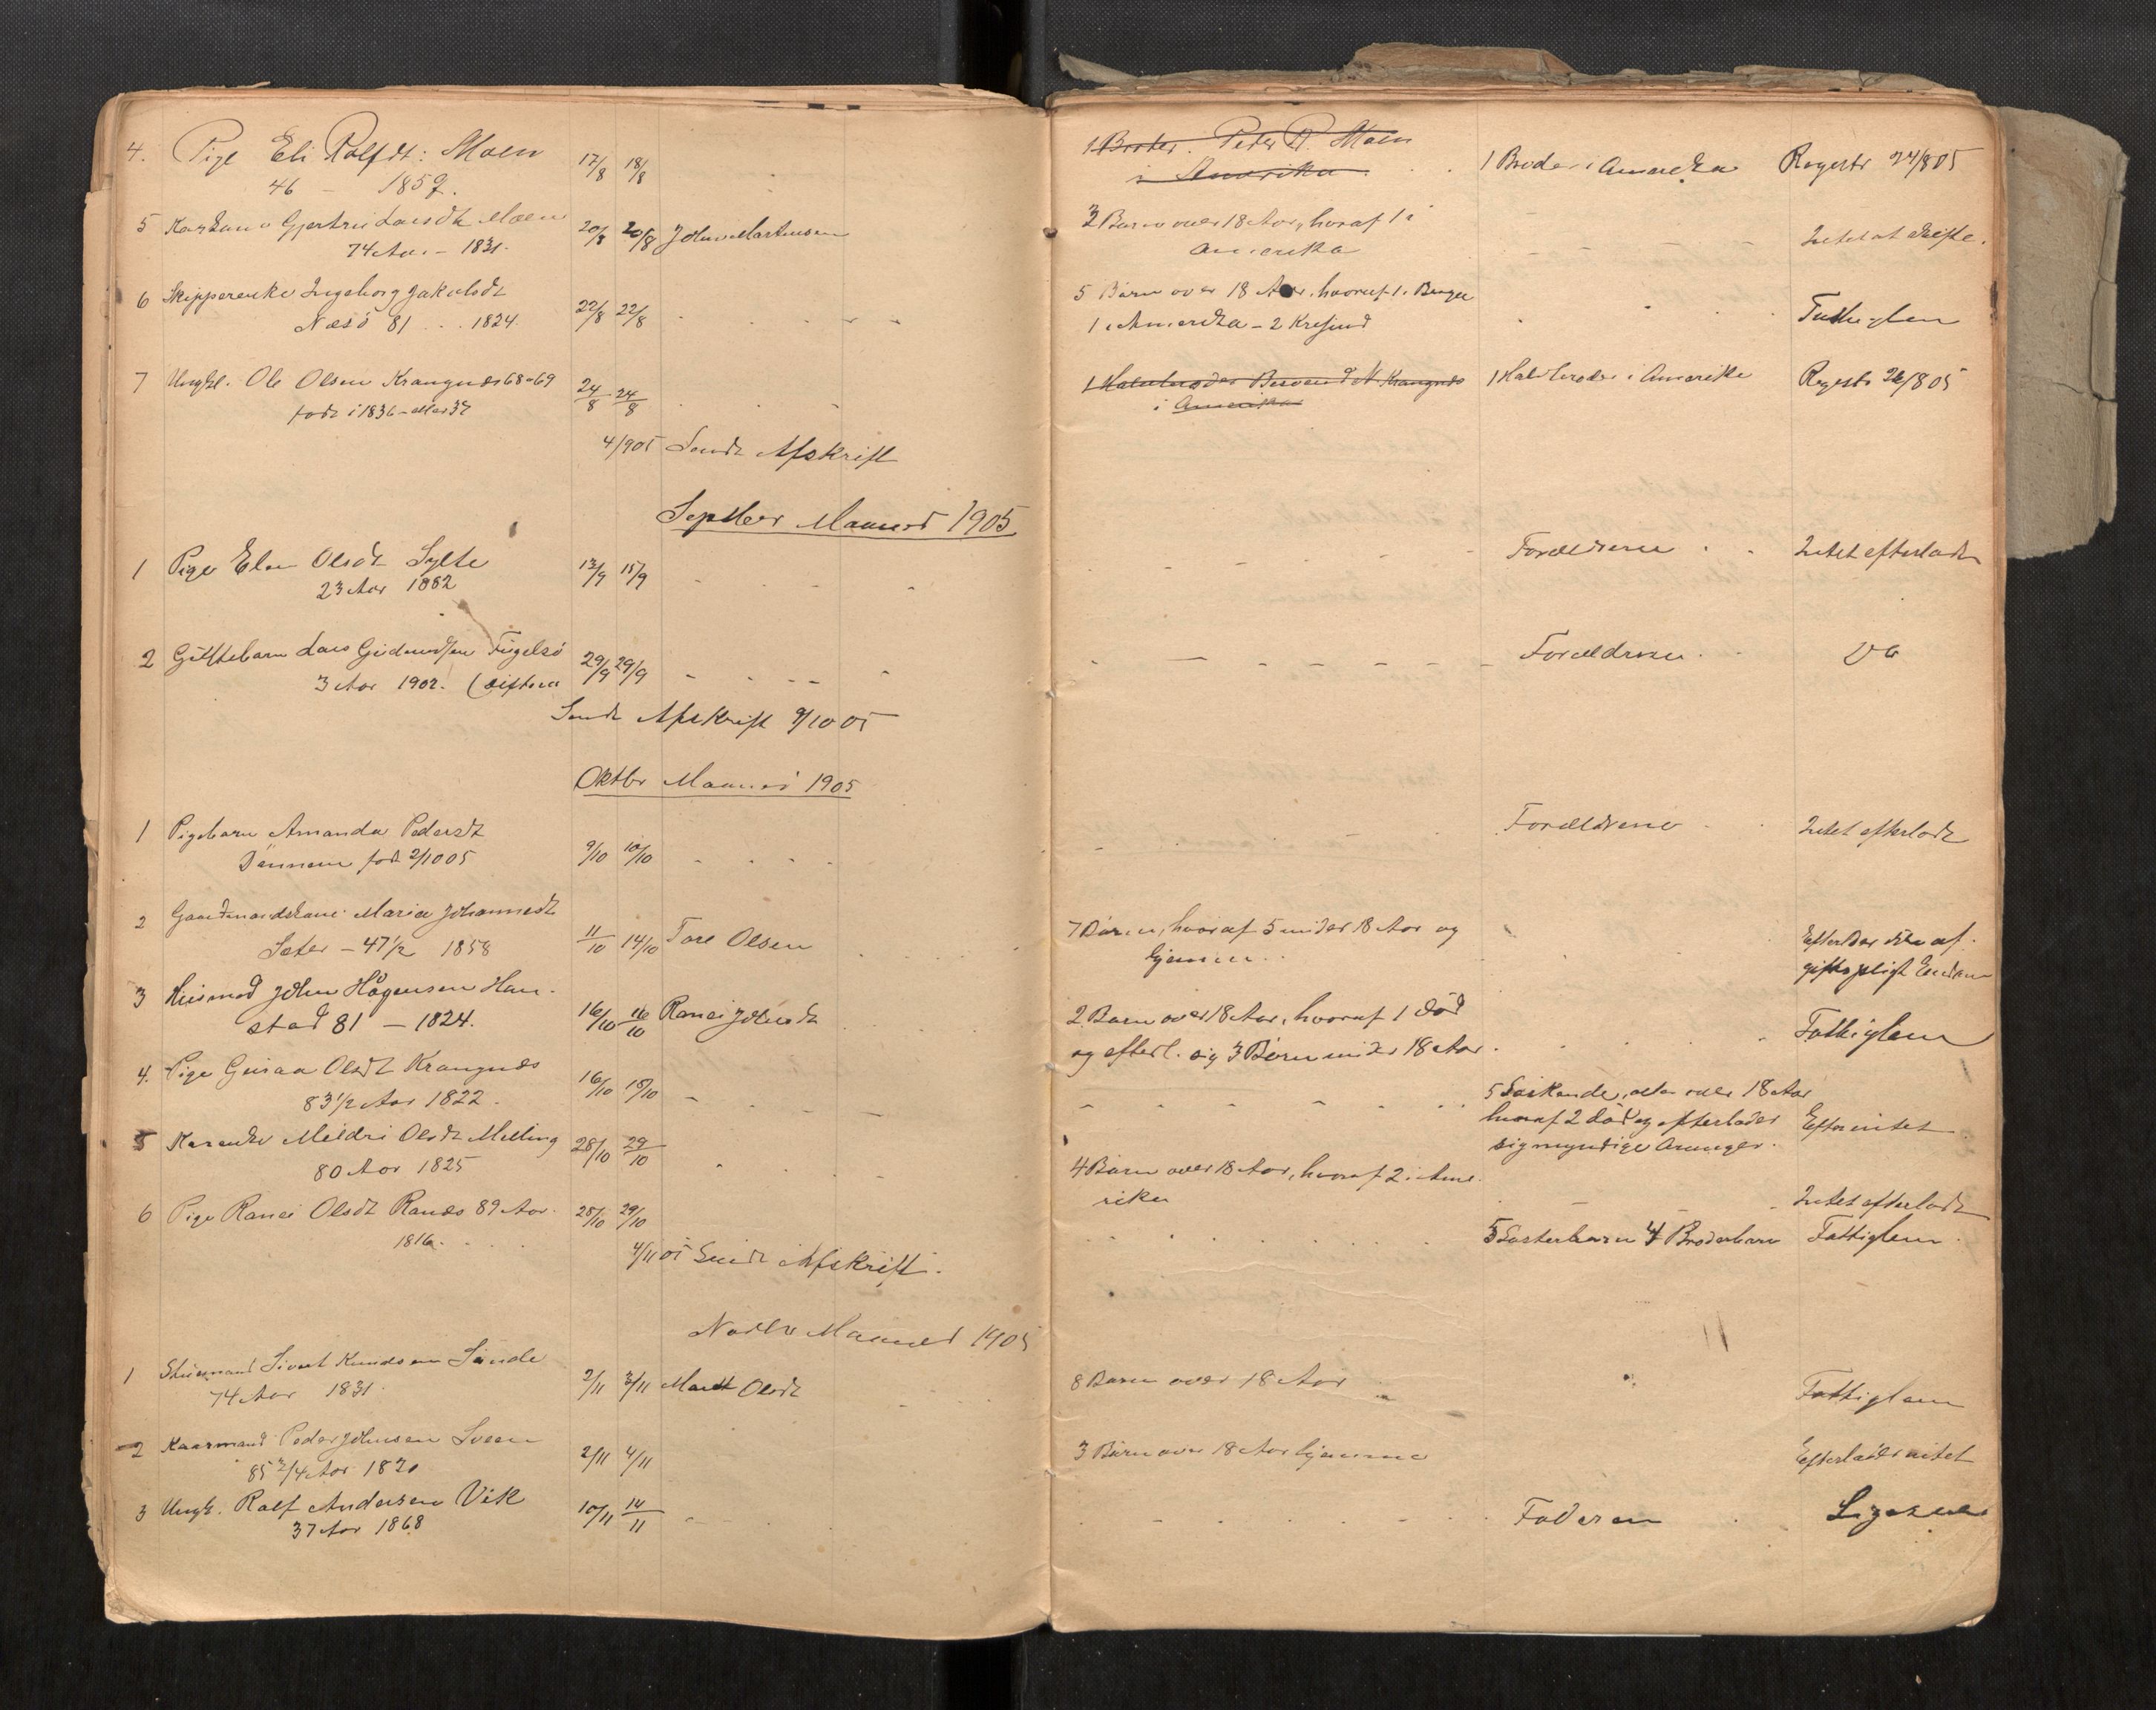 4. Pige Eli Rolfdt: Moen 17/8 18/8 1 Broder. Peder R. Moen
46 – 1859. i Amerika. 1 Broder i Amerika Regestr 24/8 05
5 Kaarkone Gjertrud Larsdt Moen 20/8 20/8 John Martinsen 3 Børn over 18 Aar, hvoraf 1 i
74 Aar – 1831. Amerika Intet at skifte.
6 Skipperenke Ingeborg Jakobsdt 22/8 22/8 5 Børn over 18 Aar, hvoraf 1 i Bergen
Næsø 81 1824. 1 i Amerika – 2 Krsund Fattiglem
7 Ungkl. Ole Olsen Krangnæs 68-69 24/8 24/8 1 Halvbroder N. Krangnæs 1 Halvbroder i Amerika Regestr 26/8 05
født i 1836 – eller 37 i Amerika
4/9 05 Sendt Afskrift
Septber Maaned 1905
1 Pige Elen Olsdt Sylte 13/9 15/9 Forældrene Intet efterladt
23 Aar 1882
2 Guttebarn Lars Gudmundsen Fugelsø 29/9 29/9 Forældrene
3 Aar 1902.
Sendt Afskrift 9/10 05
Oktbr Maaned 1905
1 Pigebarn Amanda Pedersdt Forældrene Intet efterladt
født 2/10 05 9/10 10/10
2 Gaardmandskone Maria Johannesdt 7 Børn, hvoraf 5 under 18 Aar og
Sæter – 47 1/2 1858 11/10 14/10 Tore Olsen hjemme. Efterlader af-
giftspligt Eiendom
3 Husmand John Hågensen Ham-
stad 81 – 1824. 16/10 16/10 Ranei Johnsdt 2 Børn over 18 Aar, hvoraf 1 død
og efterl. sig 3 Børn under 18 Aar. Fattiglem
4. Pige Guraa Olsdt Krangnæs 16/10 18/10 5 Søskende, alle over 18 Aar
83 1/2 Aar 1822. hvoraf 2 død og efterlader
sig myndige Arvinger. Efter intet
5 Kaarenke Meldri Olsdt Melling 28/10 29/10 4 Børn over 18 Aar, hvoraf 2 i Ame-
80 Aar 1825 rika Intet efterladt
6 Pige Ranei Olsdt Randes 89 Aar. 28/10 29/10
1816. 5 Søsterbørn 4 Broderbørn Fattiglem
4/11 05 Sendt Afskrift.
Novbr Maaned 1905
1 Husmand Sivert Knudsen Sunde 8 Børn over 18 Aar
74 Aar 1831. 2/11 3/11 Marit Olsdt Fattiglem
2 Kaarmand Peder Johnsen Sveen 2/11 4/11 3 Børn over 18 Aar hjemme Efterlader intet
85 3/4 Aar 1820
3 Ungk. Rolf Andersen Vik 10/11 14/11 Faderen Ligesaa
37 Aar 1868